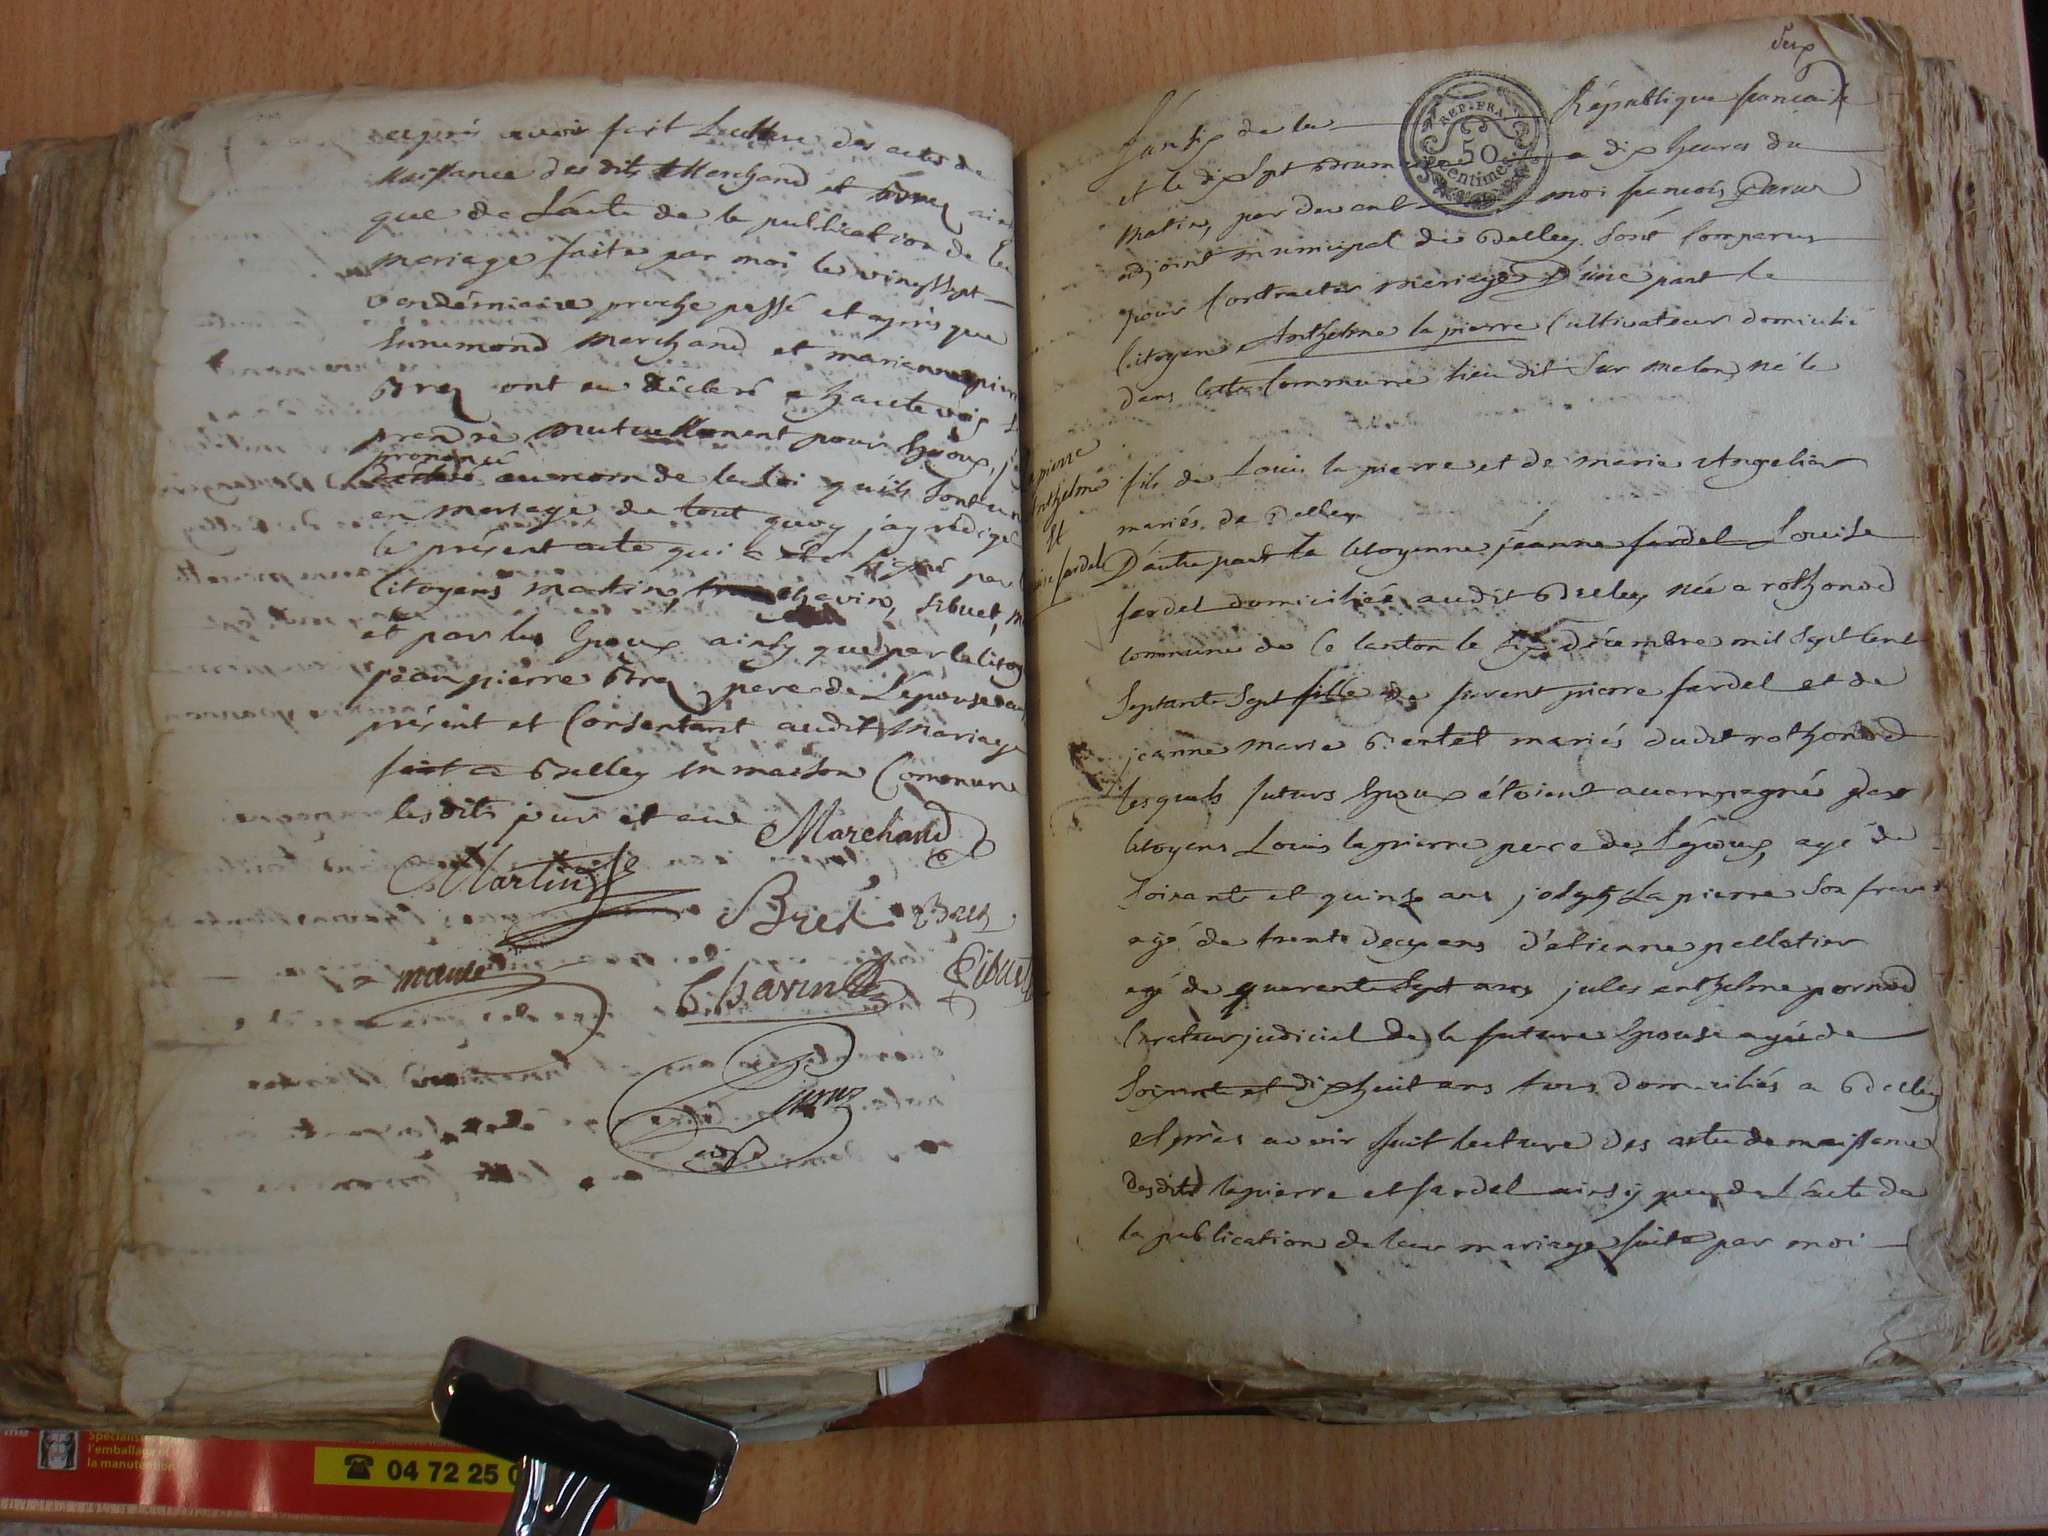 après avoir fait Lecture des actes de
Naissance desdits Marchand et Brey ains
que de L'acte de la publication de leu
mariage faite par moi le vingt sept
vendémiaire proche passé et après que
Marchand et marianne pier
Brey ont eu déclaré a haute voix s
prendre mutuellement pour Epoux, j'ay
prononcé
au nom de la loi quils sont un
en mariage de tout quoy j'ay rédigé
le présent acte qui a été signé par l
Citoyens martin, Chavin, sibuet, m
et par les Epoux ainsy que par le citoy
jean pierre Brey pere de L'épouse
présent et Consentant audit Mariage
fait a Belley en maison Commune
lesdits jour et an
Marchand
Martin
Bret Brey
Chavin Sibuet
parux
adjt
deux
L'an six de la République francaise
et le dix sept Brumaire a dix heures du
Matin, par devant moi francois parux
adjoint municipal de Belley Sont Comparus
pour Contracter mariage D'une part le
Citoyen Anthelme la pierre Cultivateur domicilié
dans cette Commune lieu dit Sur melon, né le
la pierre
Anthelme
et
Louise fardel
fils de Louis la pierre et de marie Angelier
mariés de Belley
D'autre part la Citoyenne jeanne fardel Louise
fardel domiciliée audit Belley née a rothonod
commune de Ce canton le six décembre mil sept cent
septante sept fille de fuvent pierre fardel et de
jeanne marie Bertet mariés dudit rothonod
lesquels futurs Epoux étoient accompagné des
Citoyens Louis lapierre pere de L'époux, agé de
soixante et quinze ans joseph La pierre son frere
agé de trente deux ans d'etienne pellatier
agé de quarente Sept ans jules anthelme pornod
Curateur judicial de la future Epouse agée de
Soixante et dix huit ans tous domiciliés a Belley
Après avoir fait lecture des actes de naissance
desdits lapierre et fardel ainsy que de L'acte de
la publication de leur mariage faite par moi
REP. FRA.
50
Centimes
Spécialis
l'emballag
la manutention
☎ 04 72 25 0